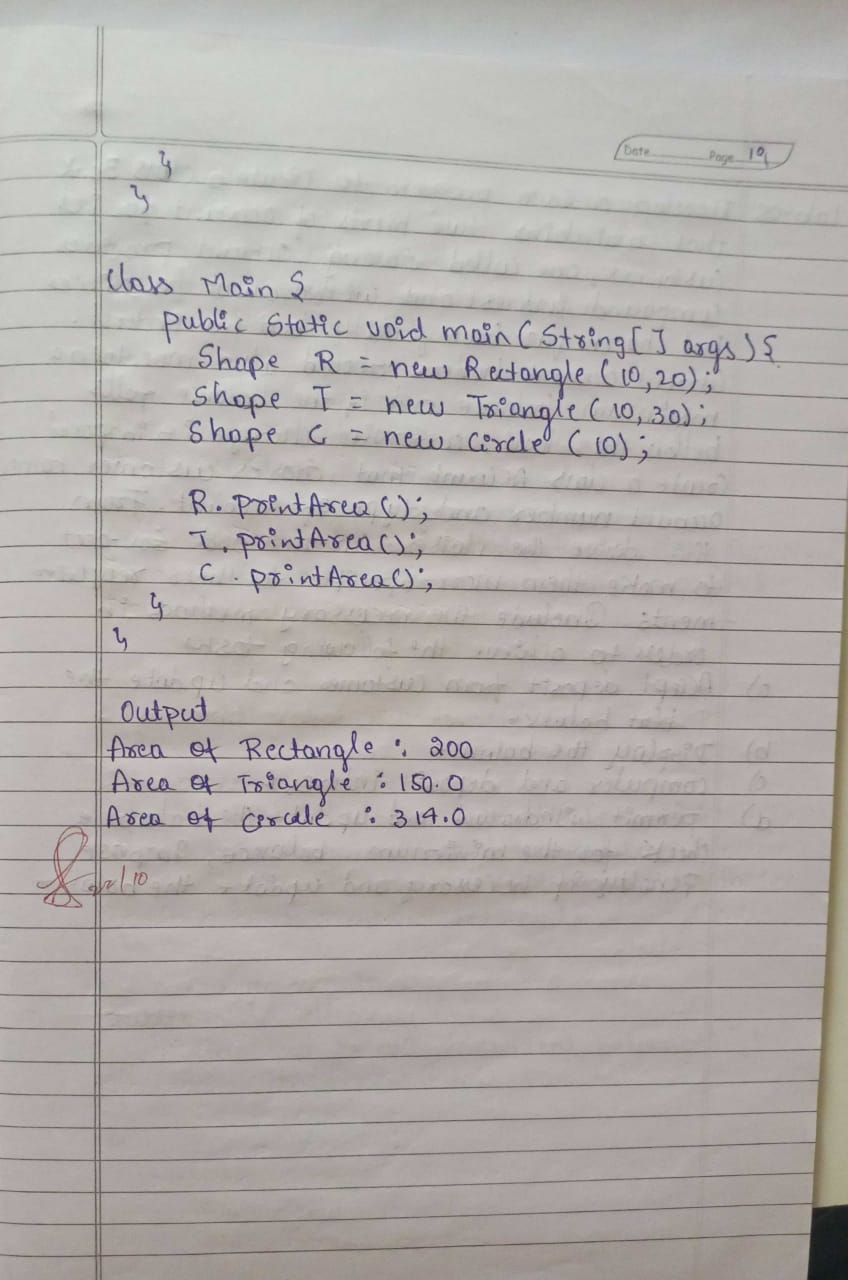 Date Page 19
}
}
Class Main {
public static void main (String [ ] args) {
Shape R = new Rectangle (10,20);
Shape T = new Triangle (10,30);
Shape C = new Circle (10);
R. printArea ();
T. printArea();
C . printArea();
}
}
Output
Area of Rectangle : 200
Area of Triangle : 150.0
Area of Circale : 314.0